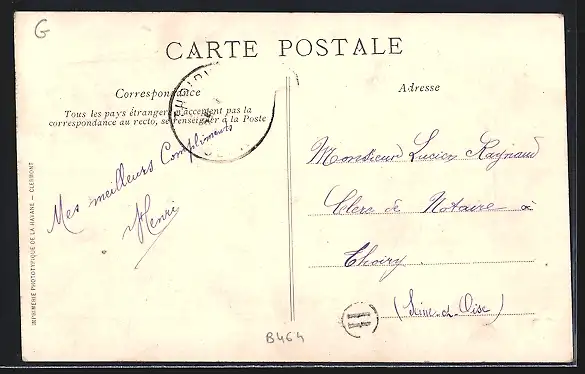 G
CARTE POSTALE
Correspondance
Tous les pays étrangers n'acceptent pas la
correspondance au recto, se renseigner à la Poste
Mes meilleurs Compliments
Henri
Adresse
Monsieur Lucien Raynaud
Clerc de Notaire à
Thoiry.
(Seine-et-Oise)
IMPRIMERIE PHOTOTYPIQUE DE LA HAYANE — CLERMONT
B464